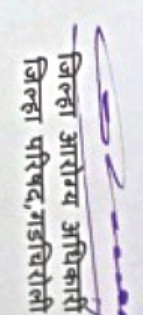 जिल्हा आरोग्य अधिकारी
जिल्हा परिषद,गडचिरोली